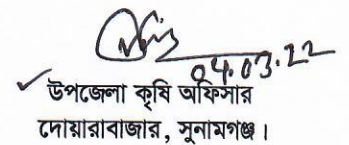 04.03.22
উপজেলা কৃষি অফিসার
দোয়ারাবাজার, সুনামগঞ্জ।